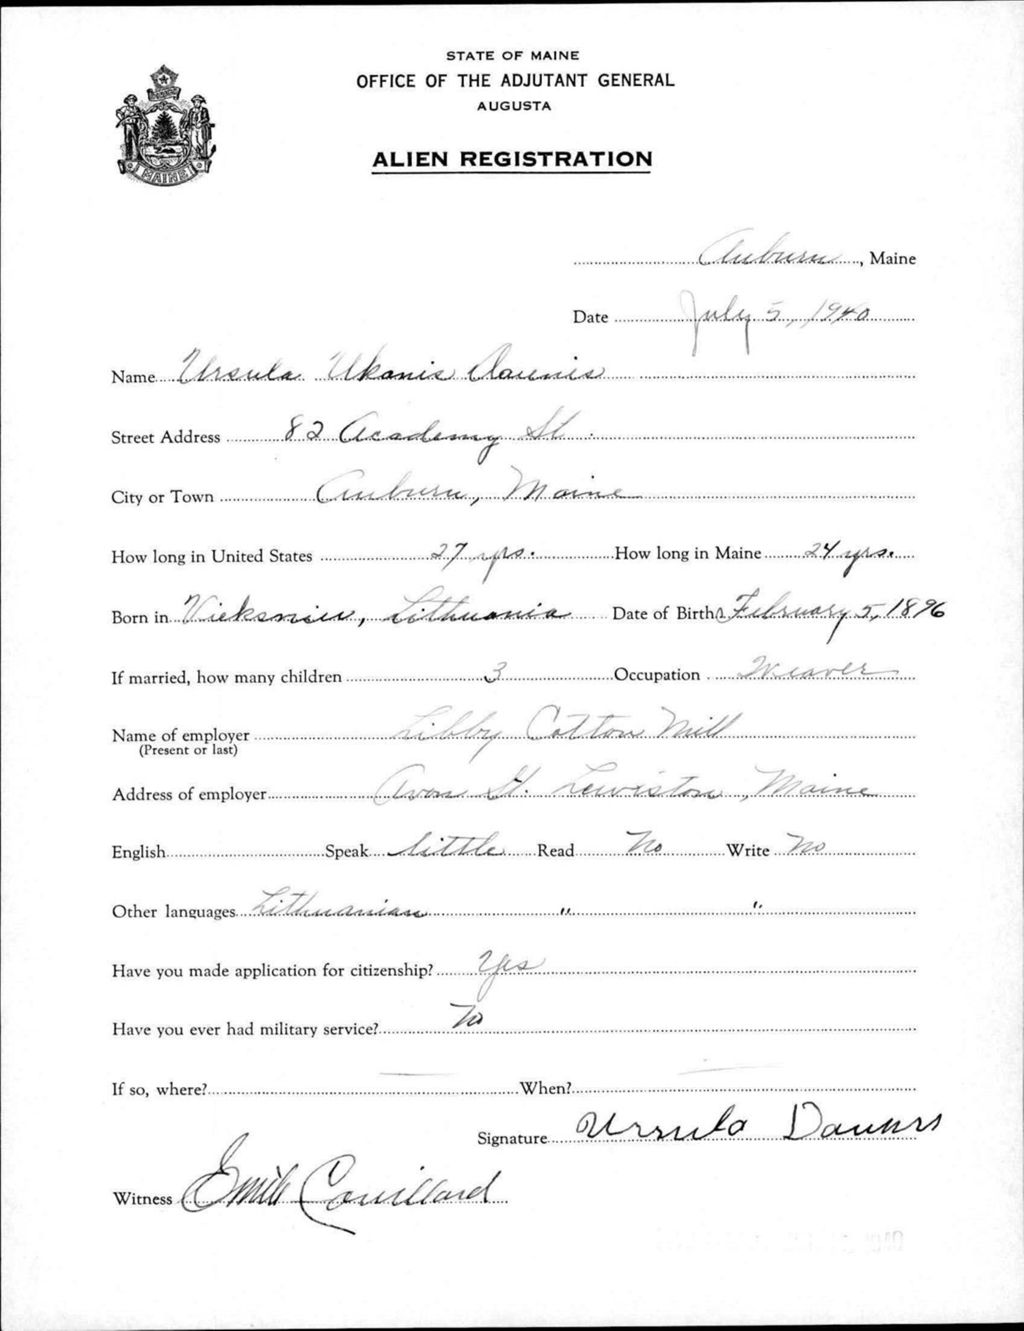 STATE OF MAINE
OFFICE OF THE ADJUTANT GENERAL
AUGUSTA
ALIEN REGISTRATION
MAINE
Auburn, Maine
Date July 5, 1940
Name Ursula Ukanis Daunis
Street Address 82 Academy St.
City or Town Auburn, Maine
How long in United States 27 yrs. How long in Maine 24 yrs.
Born in Vieksniu, Lithuania Date of Birth February 5, 1896
If married, how many children 3 Occupation Weaver
Name of employer Libby Cotton Mill
(Present or last)
Address of employer Avon St. Lewiston, Maine
English Speak little Read No Write No
Other languages Lithuanian " "
Have you made application for citizenship? Yes
Have you ever had military service? No
If so, where? — When? —
Signature Ursula Daunis
Witness Emile Couillard